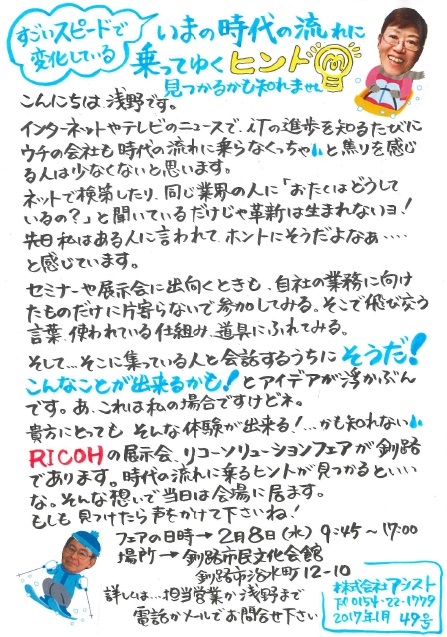 すごいスピードで
変化している
いまの時代の流れに
乗ってゆくヒント
見つかるかも知れません
こんにちは 浅野です。
インターネットやテレビのニュースで、iTの進歩を知るたびに
ウチの会社も時代の流れに乗らなくっちゃと焦りを感じ
る人は少なくないと思います。
ネットで検索したり、同じ業界の人に「おたくはどうして
いるの?」と聞いているだけじゃ革新は生まれないヨ!
先日私はある人に言われて、ホントにそうだよなぁ・・・・
と感じています。
セミナーや展示会に出向くときも、自社の業務に向け
たものだけに片寄らないで参加してみる。そこで飛び交う
言葉、使われている仕組み、道具にふれてみる。
そして…そこに集っている人と会話するうちにそうだ!
こんなことが出来るかも!とアイデアが浮かぶん
です。あ、これは私の場合ですけどネ。
貴方にとっても そんな体験が出来る!…かも知れない
RICOHの展示会、リコーソリューションフェアが釧路
であります。時代の流れに乗るヒントが見つかるといい
な。そんな想いで当日は会場に居ます。
もしも 見つけたら声をかけて下さいね!
フェアの日時→2月8日(水) 9:45~17:00
場所→釧路市民文化会館
釧路市治水町12-10
詳しくは…担当営業か浅野まで
電話かメールでお問合せ下さい
株式会社アシスト
Tel 0154-22-1779
2017年1月 49号